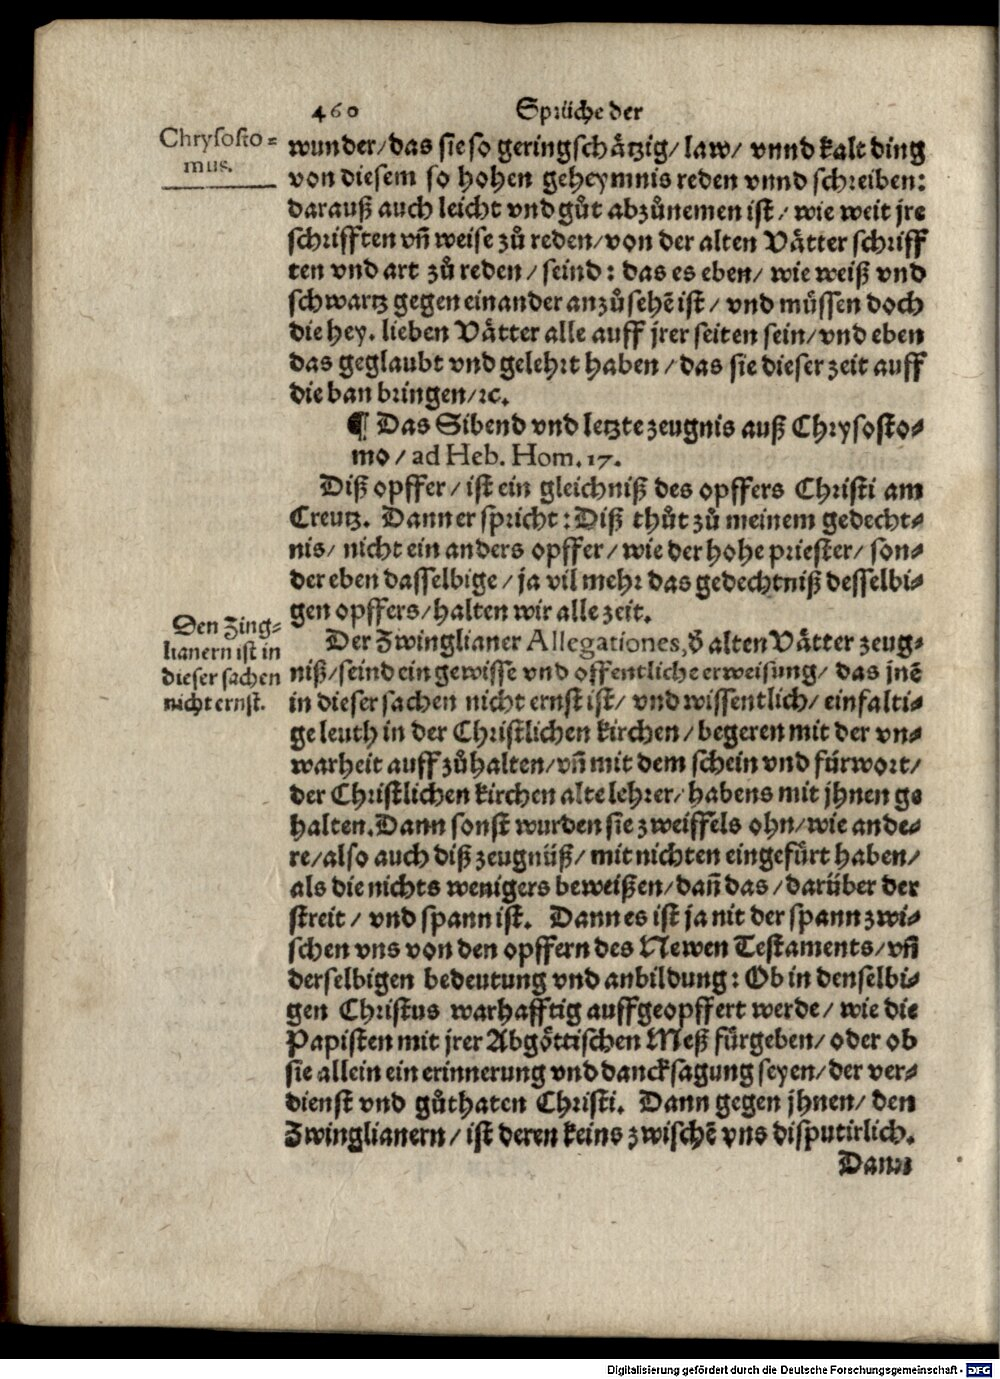 460 Sprüche der
Chrysosto=
mus.
wunder/das sie so geringschätzig/law/ vnnd kalt ding
von diesem so hohen geheymnis reden vnnd schreiben:
darauß auch leicht vnd gůt abzůnemen ist/ wie weit jre
schrifften vñ weise zů reden/von der alten Vätter schriff
ten vnd art zů reden/seind: das es eben/ wie weiß vnd
schwartz gegen einander anzůsehẽ ist/ vnd müssen doch
die hey. lieben Vätter alle auff jrer seiten sein/vnd eben
das geglaubt vnd gelehrt haben/das sie dieser zeit auff
die ban bringen/ꝛc.
¶ Das Sibend vnd letzte zeugnis auß Chrysosto-
mo/ad Heb. Hom. 17.
Diß opffer/ist ein gleichniß des opffers Christi am
Creutz. Dann er spricht: Diß thůt zů meinem gedecht-
nis/ nicht ein anders opffer/wie der hohe priester/ son-
der eben dasselbige/ja vil mehr das gedechtniß desselbi-
gen opffers/halten wir alle zeit.
Den Zing-
lianern ist in
dieser sachen
nicht ernst.
Der Zwinglianer Allegationes, d̾ alten Vätter zeug-
niß/seind ein gewisse vnd offentliche erweisung/ das jnẽ
in dieser sachen nicht ernst ist/ vnd wissentlich/ einfalti-
ge leuth in der Christlichen kirchen/begeren mit der vn-
warheit auff zůhalten/vñ mit dem schein vnd fürwort/
der Christlichen kirchen alte lehrer/habens mit jhnen ge
halten. Dann sonst wurden sie zweiffels ohn/wie ande-
re/also auch diß zeugnüß/mit nichten eingefürt haben/
als die nichts wenigers beweißen/dañ das/darüber der
streit/ vnd spann ist. Dann es ist ja nit der spann zwi-
schen vns von den opffern des Newen Testaments/vñ
derselbigen bedeutung vnd anbildung: Ob in denselbi-
gen Christus warhafftig auffgeopffert werde/wie die
Papisten mit jrer Abgöttischen Meß fürgeben/oder ob
sie allein ein erinnerung vnd dancksagung seyen/der ver-
dienst vnd gůthaten Christi. Dann gegen jhnen/den
Zwinglianern/ist deren keins zwischẽ vns disputirlich.
Dann
Digitalisierung gefördert durch die Deutsche Forschungsgemeinschaft - DFG